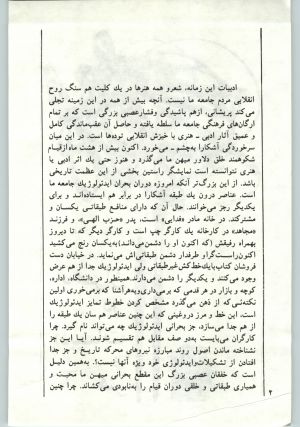 ادبیات این زمانه، شعر و همه هنرها در یك كلیت هم سنگ روح
انقلابی مردم جامعه ما نیست. آنچه بیش از همه در این زمینه تجلی
می‌كند پریشانی، ازهم پاشیدگی وفشارعصبی بزرگی است كه بر تمام
ارگان‌های فرهنگی جامعه ما سلطه یافته و حاصل آن عقب‌ماندگی كامل
و عمیق آثار ادبی ـ هنری با خیزش انقلابی توده‌ها است. در این میان
سرخوردگی آشكارا به‌چشم می‌خورد. اكنون بیش از هشت ماه ازقیام
شكوهمند خلق دلاور میهن ما می‌گذرد و هنوز حتی یك اثر ادبی یا
هنری نتوانسته است نمایشگر راستین بخشی از این عظمت تاریخی
باشد. از این بزرگ‌تر آنكه امروزه دوران بحران ایدئولوژیك جامعه ما
است. عناصر درون یك طبقه آشكارا در برابر هم ایستاده‌اند و برای
یكدیگر رجز می‌خوانند. حال آن كه دارای منافع طبقاتی یكسان و
مشتركند. در خانه مادر «فدایی» است، پدر «حزب الهی»، و فرزند
«مجاهد» در كارخانه یك كارگر چپ است و كارگر دیگر كه تا دیروز
بهمراه رفیقش (كه اكنون او را دشمن می‌داند) به‌یكسان رنج می‌كشید
اكنون‌راست‌گراو طرفدار دشمن طبقاتی‌اش می‌نماید. در خیابان دست
فروشان كتاب‌بایك‌خط‌كش غیرطبقاتی ولی ایدئولوژیك جدا از هم عرض
وجود می‌كنند و یكدیگر را دشمن می‌دارند. همینطور در دانشگاه، اداره،
كوچه و بازار و در هر قدمی كه برمی‌داری‌وبه‌هرآشنا كه برمی‌خوری اولین
نكته‌ئی كه از ذهن می‌گذرد مشخص كردن خطوط تمایز ایدئولوژیك
است. این خط و مرز دروغینی كه این چنین عناصر هم سان یك طبقه را
از هم جدا می‌سازد، جز بحرانی ایدئولوژیك چه می‌تواند نام گیرد.
كارگران می‌بایست به‌دو صف مقابل هم تقسیم شوند. آیا این جز
نشناخته ماندن اصول روند مبارزه نیروهای محركه تاریخ و جز جدا
افتادن از تشكیلات‌وایدئولوژی خود ویژه آنها نیست؟. به‌همین دلیل
است كه خفقان عصبی بزرگ این مقطع بحرانی میهن ما محبت و
همیاری طبقاتی و خلقی دوران قیام را به‌نابودی می‌كشاند. چرا چنین
۲